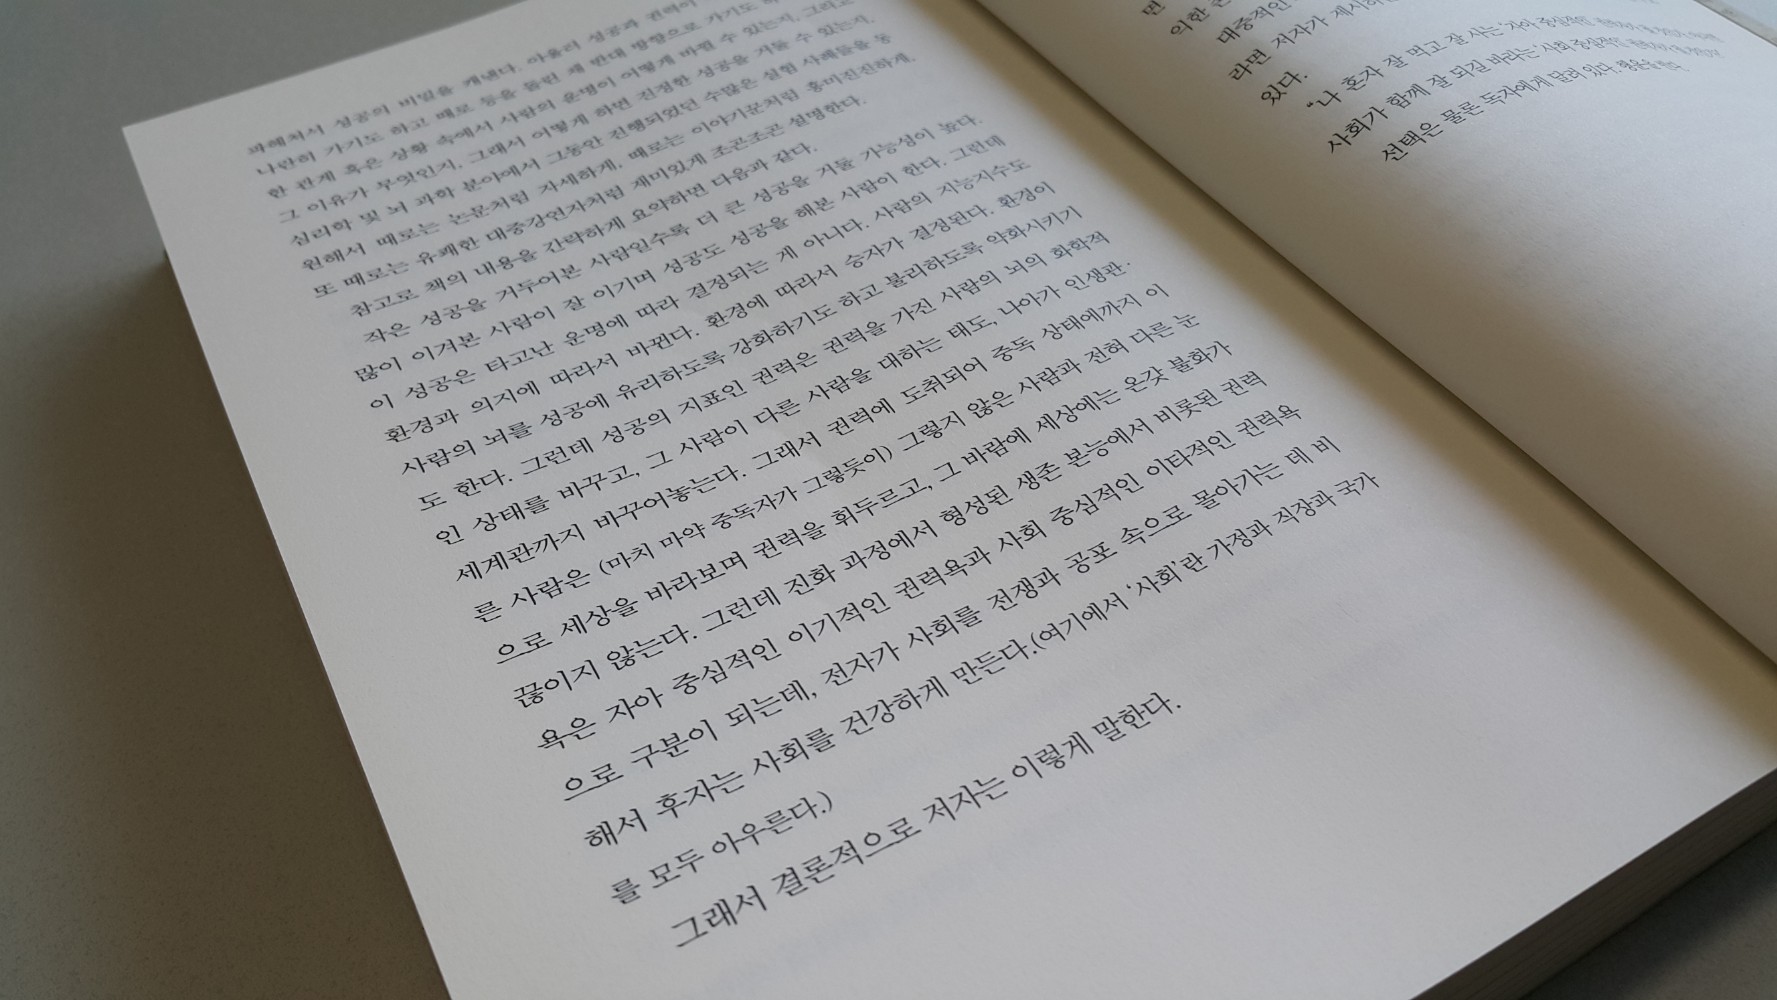 파헤쳐서 성공의 비밀을 캐낸다. 아울러 성공과 권력이
나란히 가기도 하고 때로 등을 돌린 채 반대 방향으로 가기도 하
한 관계 혹은 상황 속에서 사람의 운명이 어떻게 바뀔 수 있는지, 그리고
그 이유가 무엇인지, 그래서 어떻게 하면 진정한 성공을 거둘 수 있는지,
심리학 및 뇌 과학 분야에서 그동안 진행되었던 수많은 실험 사례들을 동
원해서 때로는 논문처럼 자세하게, 때로는 이야기꾼처럼 흥미진진하게,
또 때로는 유쾌한 대중강연자처럼 재미있게 조곤조곤 설명한다.
참고로 책의 내용을 간략하게 요약하면 다음과 같다.
작은 성공을 거두어본 사람일수록 더 큰 성공을 거둘 가능성이 높다.
많이 이겨본 사람이 잘 이기며 성공도 성공을 해본 사람이 한다. 그런데
이 성공은 타고난 운명에 따라 결정되는 게 아니다. 사람의 지능지수도
환경과 의지에 따라서 바뀐다. 환경에 따라서 승자가 결정된다. 환경이
사람의 뇌를 성공에 유리하도록 강화하기도 하고 불리하도록 약화시키기
도 한다. 그런데 성공의 지표인 권력은 권력을 가진 사람의 뇌의 화학적
인 상태를 바꾸고, 그 사람이 다른 사람을 대하는 태도, 나아가 인생관·
세계관까지 바꾸어놓는다. 그래서 권력에 도취되어 중독 상태에까지 이
른 사람은 (마치 마약 중독자가 그렇듯이) 그렇지 않은 사람과 전혀 다른 눈
으로 세상을 바라보며 권력을 휘두르고, 그 바람에 세상에는 온갖 불화가
끊이지 않는다. 그런데 진화 과정에서 형성된 생존 본능에서 비롯된 권력
욕은 자아 중심적인 이기적인 권력욕과 사회 중심적인 이타적인 권력욕
으로 구분이 되는데, 전자가 사회를 전쟁과 공포 속으로 몰아가는 데 비
해서 후자는 사회를 건강하게 만든다.(여기에서 '사회'란 가정과 직장과 국가
를 모두 아우른다.)
그래서 결론적으로 저자는 이렇게 말한다.
면
의한
대중적인
라면 저자가 제시하는
있다.
"나 혼자 잘 먹고 잘 사는 '자아 중심적인
사회가 함께 잘 되길 바라는 '사회 중심적인
선택은 물론 독자에게 달려 있다. 행운을 빈다.